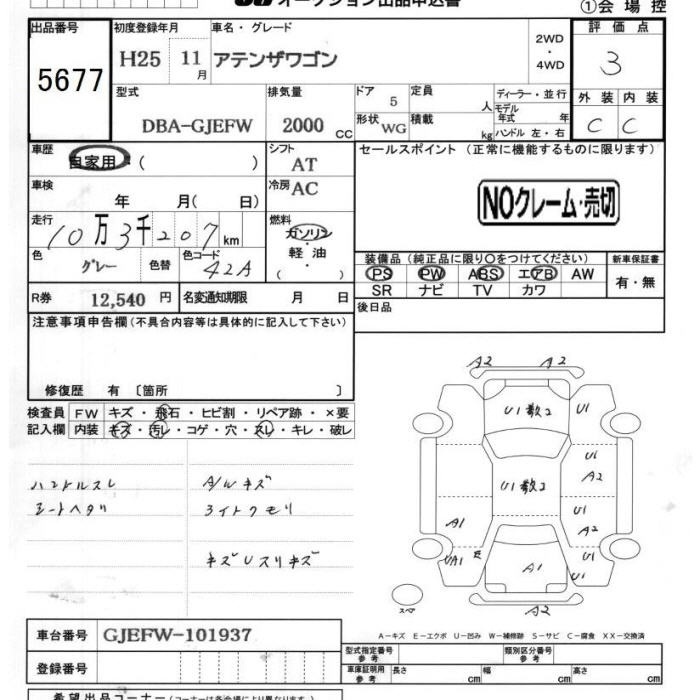 オークション出品申込書
①会場控
出品番号
5677
初度登録年月
H25 11月
車名・グレード
アテンザワゴン
2WD
・
4WD
評価点
3
外装 内装
C C
型式
DBA-GJEFW
排気量
2000 cc
ドア 5
形状 WG
定員 人
積載 kg
ディーラー・並行
モデル年式 年
ハンドル 左・右
車歴
自家用・( )
シフト
AT
車検
年 月( 日)
冷房
AC
走行
10万3千207km
燃料
ガソリン
・
軽油
( )
色
グレー
色替
色コード
42A
R券 12,540 円
名変通知期限 月 日
セールスポイント (正常に機能するものに限ります)
NOクレーム・売切
装備品(純正品に限り○をつけてください)
PS PW ABS エアB AW
SR ナビ TV カワ
新車保証書
有・無
後日品
注意事項申告欄(不具合内容等は具体的に記入して下さい)
修復歴 有〔箇所 〕
検査員 FW キズ・飛石・ヒビ割・リペア跡・×要
記入欄 内装 キズ・汚レ・コゲ・穴・スレ・キレ・破レ
ハンドルスレ
シートヘタリ
A/Wキズ
ライトクモリ
キズUスリキズ
A2 A2
U1数2 U1
U1
A2
U1数2
U1
A2
A1
UA1
U1
A1
U1
A2
スペア
A－キズ E－エクボ U－凹み W－補修跡 S－サビ C－腐食 XX－交換済
車台番号 GJEFW-101937
登録番号
型式指定番号
参考
類別区分番号
参考
車庫証明用
参考
長さ cm 幅 cm 高さ cm
希望出品コーナー(コーナーは各会場により異なります。)